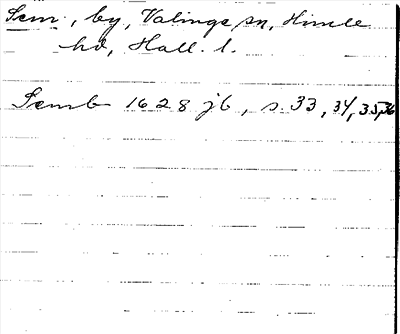 Sem, by, Valinge sn, Himle
hd, Hall. l.
Semb 1628 jb, s. 33, 34, 35, 36